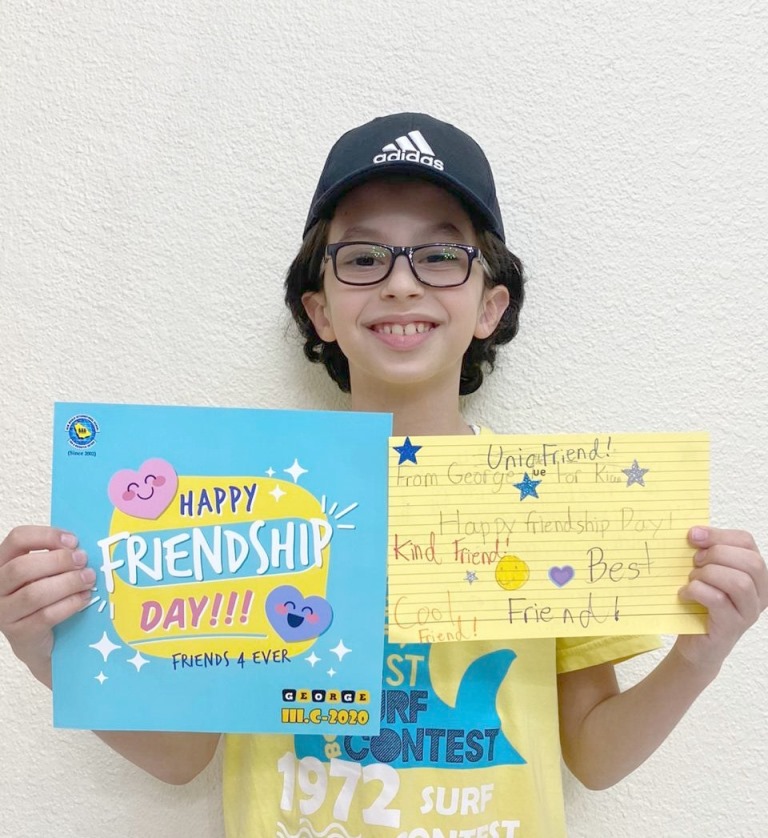 adidas
(Since 2002)
HAPPY
FRIENDSHIP
DAY!!!
FRIENDS 4 EVER
GEORGE
III.C-2020
Uniq Friend!
ue
From George For
Happy friendship Day!
Kind Friend!
Best
Friend!
Cool
Friend!
ST
URF
CONTEST
1972 SURF
CONTEST